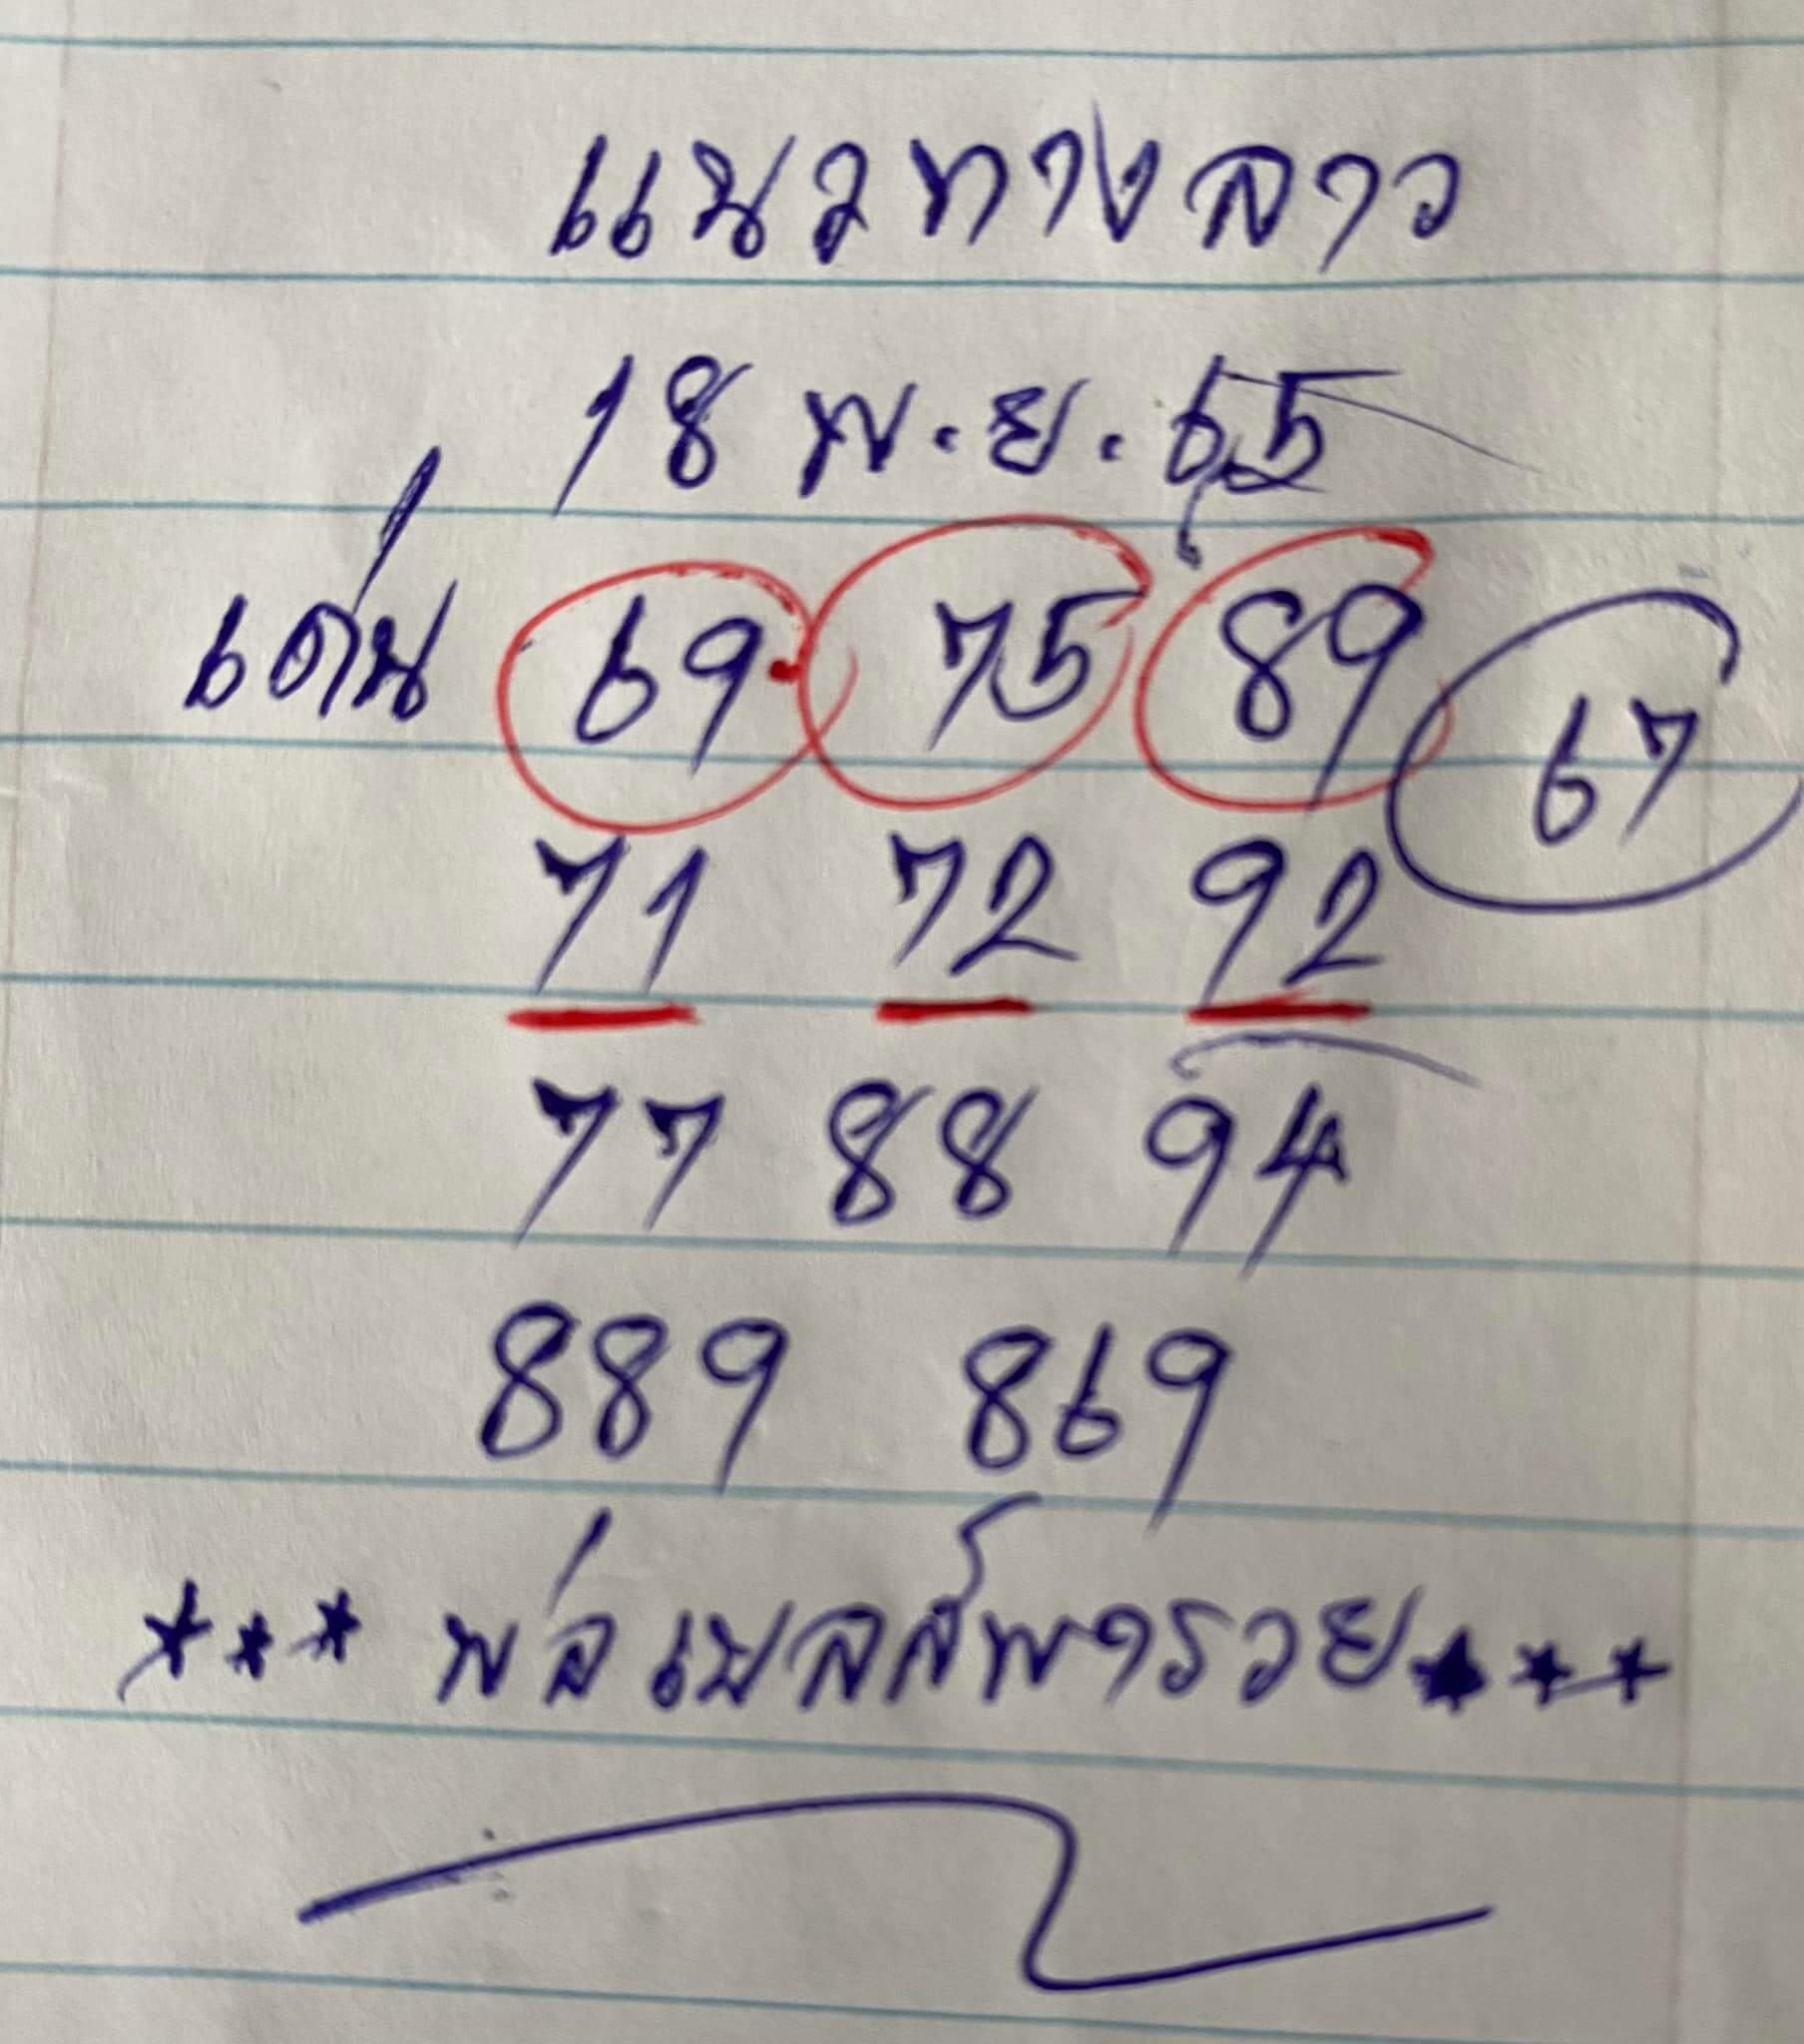 แนวทางลาว
18 พ.ย. 65
เด่น 69 75 89 67
71 72 92
77 88 94
889 869
*** พ่อเบลล์พารวย ***